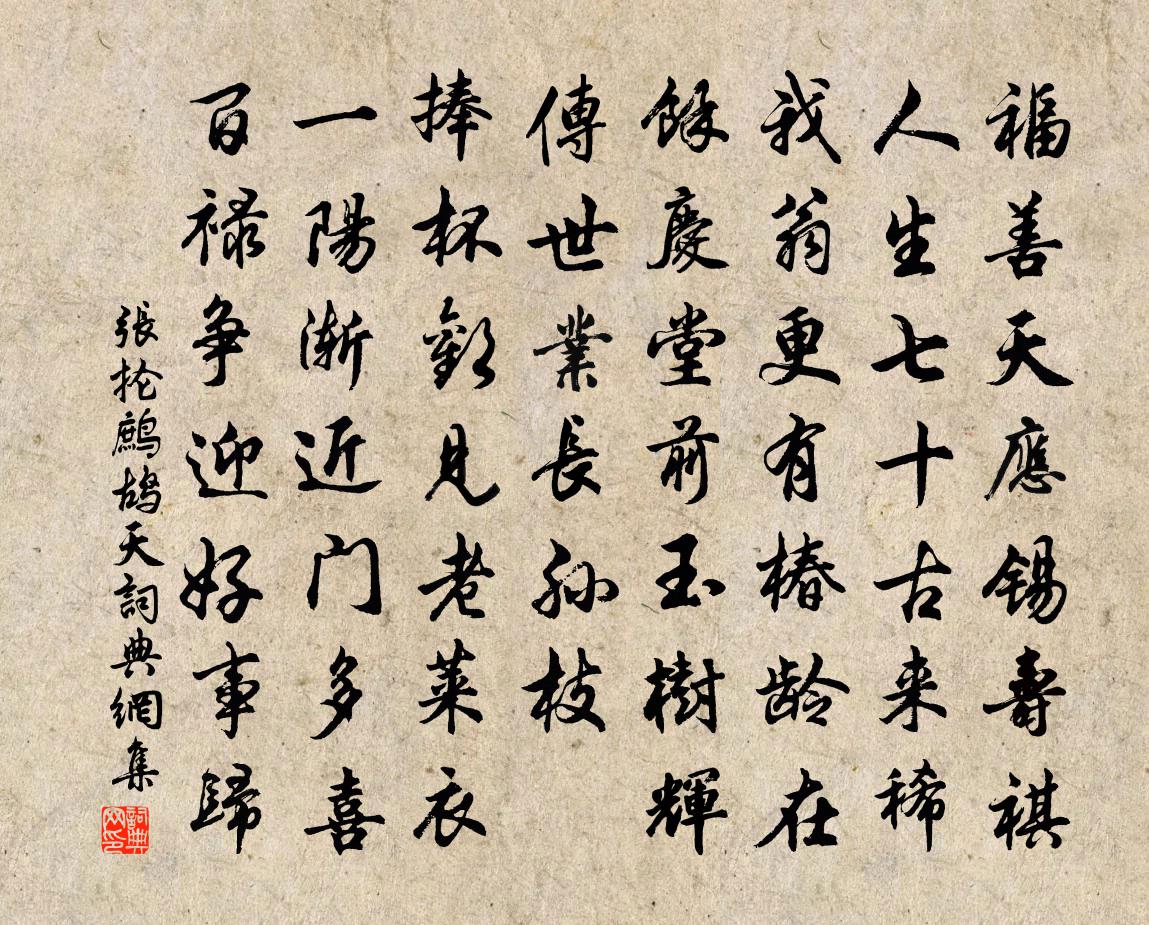 福善天應锡壽祺
人生七十古来稀
我翁更有椿龄在
餘慶堂前玉樹輝
傳世業長孙枝
捧杯歡見老莱衣
一陽漸近门多喜
百禄争迎好事歸
張抡鷓鴣天詞典網集
詞典网印